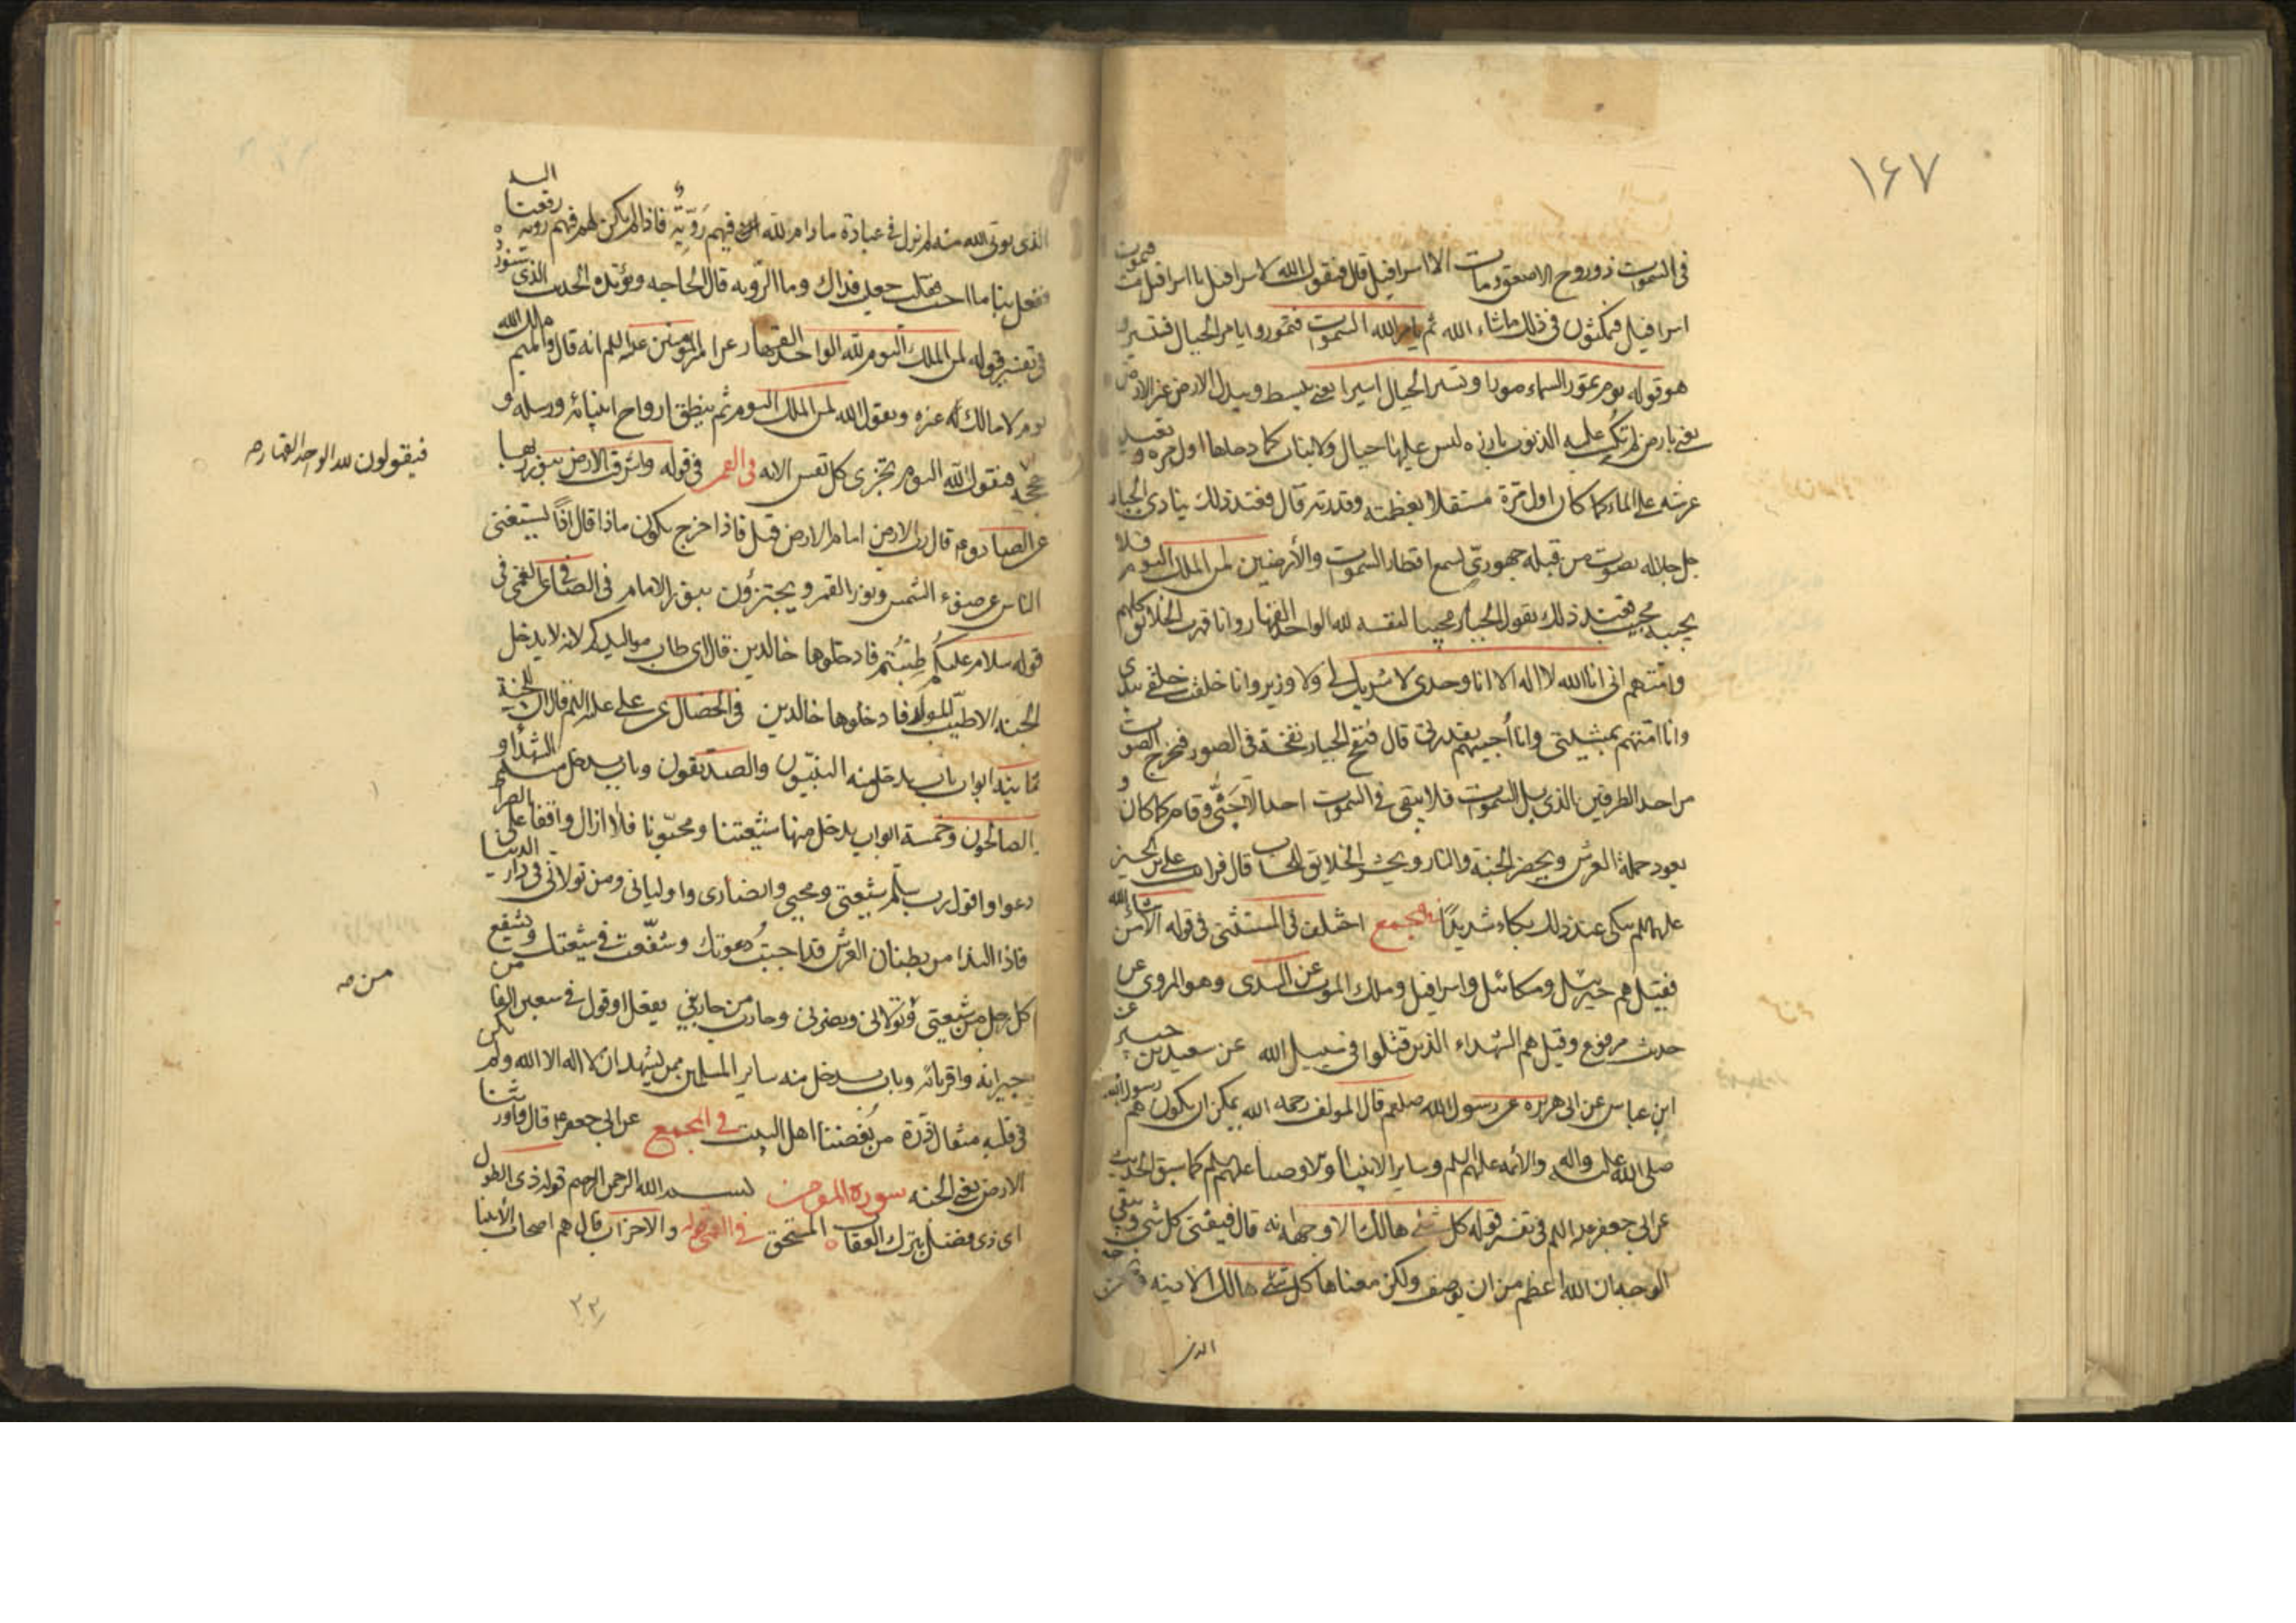 ١٦٧
في السموات ذو روح الا صعق ومات الا اسرافيل قال فيقول الله لاسرافيل يا اسرافيل مت فيموت
اسرافيل فيمكثون في ذلك ماشاء الله ثم يامر الله السموات فتمور ويامر الجبال فتسير و
هو قوله يوم تمور السماء مورا وتسير الجبال سيرا يعني يبسط ويبدل الارض غير الارض
يعني بارض لم تكسب عليها الذنوب بارزه ليس عليها جبال ولا نبات كما دحاها اول مره و يعيد
عرشه على الماء كما كان اول مرة مستقلا بعظمته وقدرته قال فعند ذلك ينادي الجبار
جل جلاله بصوت من قبله جهوري يسمع اقطار السموات والأرضين لمن الملك اليوم فلا
يجيبه مجيب فعند ذلك يقول الجبار مجيبا لنفسه لله الواحد القهار وانا قهرت الخلائق كلهم
وامتهم اني انا الله لا اله الا انا وحدي لا شريك لي ولا وزير وانا خلقت خلقي بيدي
وانا امتهم بمشيتي وانا أحييهم بقدرتي قال فنفخ الجبار نفخة في الصور فيخرج الصوت
من احد الطرفين الذي يلي السموات فلا يبقى في السموات احد الا حَيّ وقام كما كان و
يعود حملة العرش ويحضر الجنة والنار ويحشر الخلايق للحساب قال فرايت علي بن الحسين
عليهما السلم يبكي عند ذلك بكاء شديدًا في المجمع اختلف في المستثنى في قوله الا من شاء الله
فقيل هم جبرئيل وميكائيل واسرافيل وملك الموت عن السدي وهو المروي عن
حديث مرفوع وقيل هم الشهداء الذين قتلوا في سبيل الله عن سعيد بن جبير عن
ابن عباس عن ابي هريره عن رسول الله صلعم قال المولف رحمه الله يمكن ان يكون هم رسول الله
صلى الله عليه واله والائمه عليهم السلم وساير الانبياء والاوصياء عليهم سلم كما سبق الحديث
عن ابي جعفر عليه السلم في تفسير قوله كل شئ هالك الا وجهه انه قال فيفنى كل شئ ويبقى
الوجه ان الله اعظم من ان يوصف ولكن معناها كل شئ هالك الا دينه ونحن
الذي
الذي يوتى الله منه لم نزل في عبادة مادام لله فيهم رَوِيّة فاذا لم يكن لهم فيهم رويه رفعنا اليه
ففعل بنا ما احب قلت جعلت فداك وما الرويه قال الحاجه ويؤيده الحديث الذي
في تفسير قوله لمن الملك اليوم لله الواحد القهار عن امير المؤمنين عليه السلم انه قال والميم ملك الله
يوم لا مالك له غيره ويقول الله لمن الملك اليوم ثم ينطق ارواح انبيائه ورسله و
حججه فيقول الله اليوم تجزى كل نفس الايه في القمي في قوله واشرقت الارض بنور ربها
فيقولون لله الواحد القهار صح
عن الصادق ع قال رب الارض امام الارض قيل فاذا خرج يكون ماذا قال اذًا يستغني
الناس عن ضوء الشمس ونور القمر ويجتزؤن بنور الامام في الصافي عن القمي في
قوله سلام عليكم طِبْتُم فادخلوها خالدين قال اي طاب مواليدكم لانه لا يدخل
الجنه الا طيب المولد فادخلوها خالدين في الخصال عن علي عليه السلم قال ان للجنة
ثمانية ابواب باب يدخل منه النبيّون والصديقون وباب يدخل منه الشهداء و
الصالحون وخمسة ابواب يدخل منها شيعتنا ومحبّونا فلا ازال واقفا على الصراط
ادعوا واقول رب سلم شيعتي ومحبي وانصاري واوليائي ومن تولاني في دار الدنيا
فاذا الندا من بطنان العرش قد اجيبت دعوتك وشفّعت في شيعتك ويشفع
كل رجل من شيعتي ومن تولاني ونصرني وحارب من حاربني بفعل او قول في سبعين الفا من
من صح
جيرانه واقربائه وباب يدخل منه ساير المسلمين ممن يشهد ان لا اله الا الله ولم يكن
في قلبه مثقال ذرة من بُغضنا اهل البيت في المجمع عن ابي جعفر ع قال واورثنا
الارض يعني الجنه سورة المؤمن بسم الله الرحمن الرحيم قوله ذي الطول
اي ذي فضل بترك العقاب المستحق في القمي والاحزاب قال هم اصحاب الأنبيا
٣٣